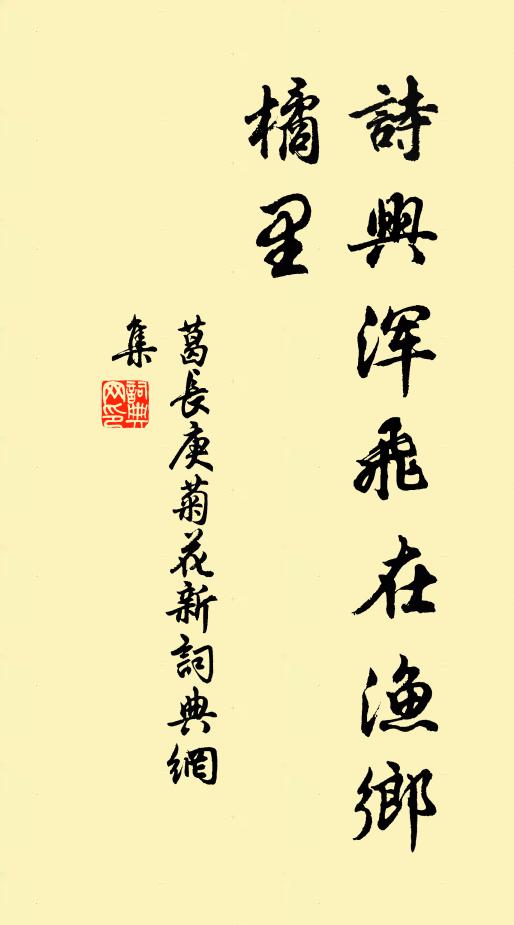 詩興渾飛在漁鄉
橘里
葛長庚菊花新詞典網
集
詞典
网印